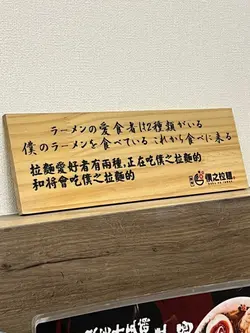 ラーメンの愛食者は2種類がいる
僕のラーメンを食べている これから食べに来る
拉麵愛好者有兩種，正在吃僕之拉麵的
和將會吃僕之拉麵的
僕之拉麵